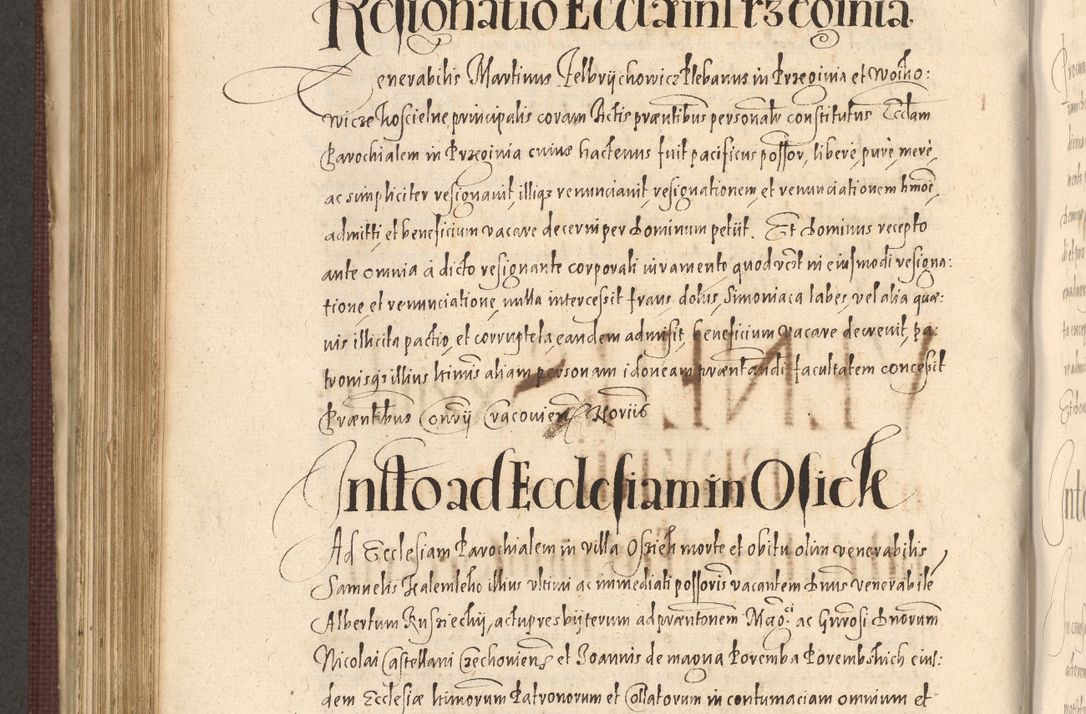 Resignatio Eccłæ in Przeginia
Venerabilis Martinus Jelbrzychowicz Plebanus in Przeginia et Woicho:
wicze Koscielne principalis coram Actis præntibus personalr constitutus Ecclam
Parochialem in Przeginia cuius hactenus fuit pacificus possor, libere, pure, mere,
ac simpliciter resignavit, illiqz renunciavit, resignationem, et renunciationem hmoi
admitti, et beneficium vacare decerni per Dominum petiit. Et Dominus recepto
ante omnia à dicto resignante corporali iuramento quod in eiusmodi resigna:
tione, et renunciatione, nulla intercessit fraus, dolus, Simoniaca labes, vel alia quæ:
vis illicita pactio, et corruptela, eandem admisit, beneficium vacare decrevit, pa:
tronisqz illius hmius aliam personam idoneam præntandi facultatem concessit
Præntibus Consrij Cracovien Noriis
Instto ad Ecclesiam in Osiek
Ad Ecclesiam Parochialem in villa Osziek morte et obitu olim venerabilis
Samuelis illius ultimi ac immediati possoris vacantem Dnus venerabile
Albertum Rusziechij, actu presbyterum ad præntonem Magci ac Gnrosi Dnorum
Nicolai Castellani Czechoviens et Joannis de magna Poremba Porembskich eius:
dem Ecclesiæ hmorum Patronorum et Collatorum in contumaciam omnium et